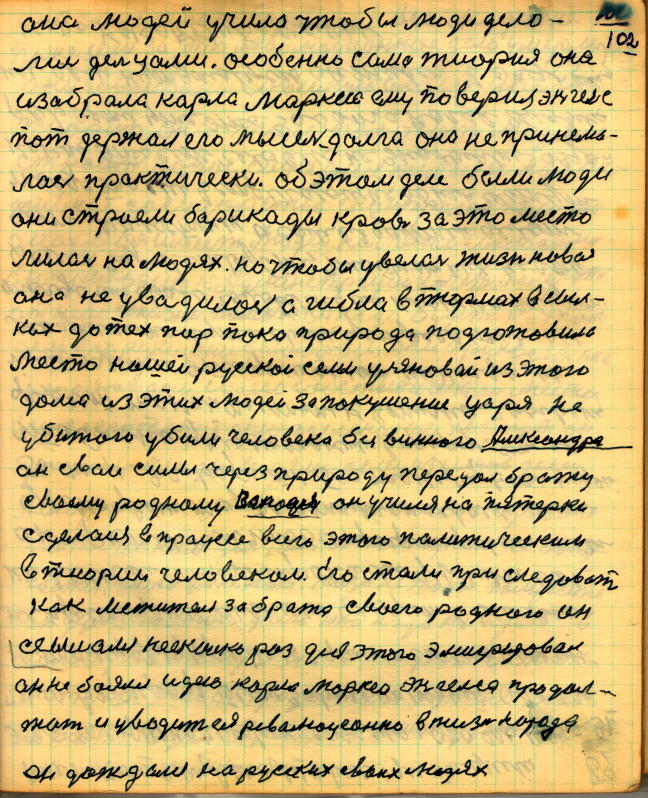 102
она людей учила чтобы люди дело-
лись делцами. особенно сама тиория она
избрала карла Маркса ему поверил энгелс
тот держал его мысел долга она не принема-
лас практически. об этом деле были люди
они строели барикады кровь за это место
лилас на людях. но чтобы увелас жизн новая
она не увадилас а гибла в тюрмах в сыл-
ках до тех пор пока природа подготовила
место нашей русской семи уляновай из этого
дома из этих людей за покушение царя не
убитого убили человека без винного Александра
он свои силы через природу передал брату
своему родному он училя на пятерки
сделаля в працесе всего этого палитическим
в тиории человеком. Его стали приследоват
как мстителя за брата своего родного он
ссылаля несколко раз для этого эмигрировал
он не боялся идею карла маркса энгелса продол-
жат и уводится революционно в жизн народа
он дождался на русских своих людях